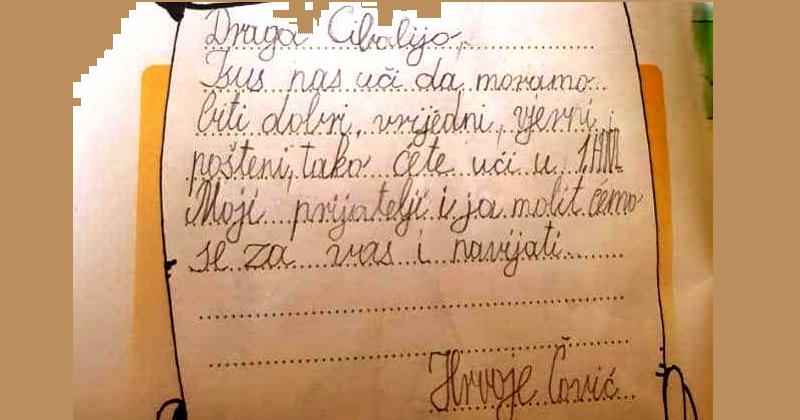 Draga Cibalijo,
Isus nas uči da moramo
biti dobri, vrijedni, vjerni,
pošteni, tako ćete ući u 1.HNL
Moji prijatelji i ja molit ćemo
se za vas i navijati.
Hrvoje Čović